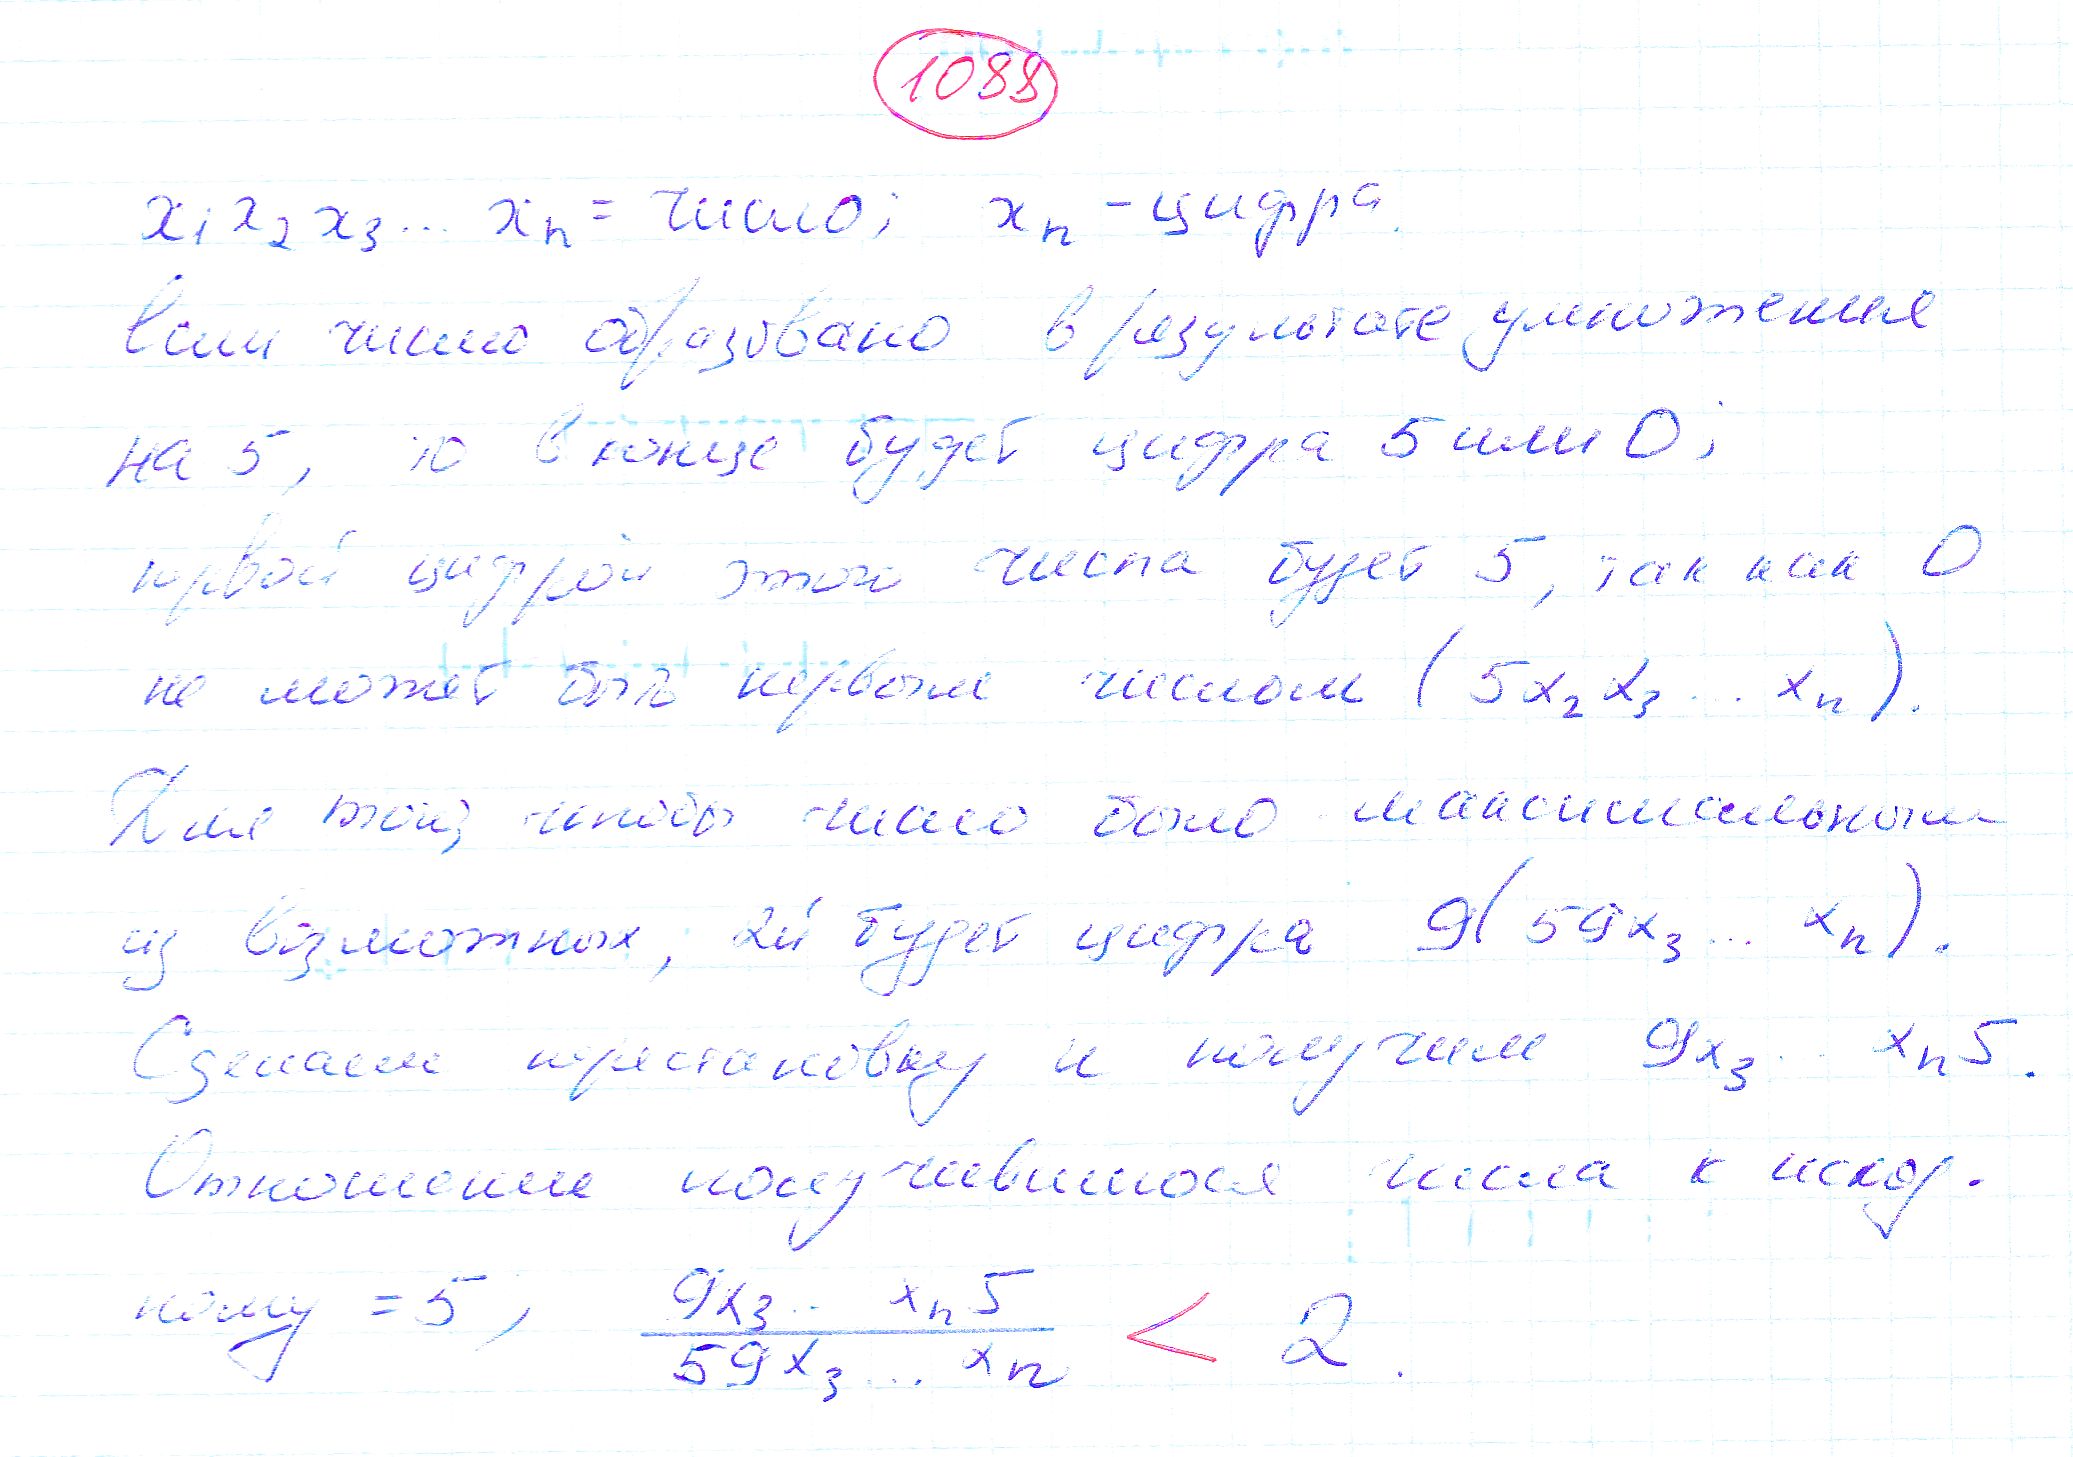 1088
x₁x₂x₃... xₙ = число; xₙ - цифра.
Если число образовано в результате умножения
на 5, то в конце будет цифра 5 или 0;
первой цифрой этого числа будет 5, так как 0
не может быть первым числом (5x₂x₃... xₙ).
Для того, чтобы число было максимальным
из возможных, 2й будет цифра 9(59x₃... xₙ).
Сделаем перестановку и получим 9x₃... xₙ5.
Отношение получившегося числа к искор.
ному = 5, 9x₃... xₙ5 / 59x₃... xₙ < 2.